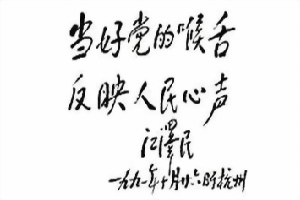 当好党的喉舌
反映人民心声
江泽民
一九九一年十月廿六日于杭州